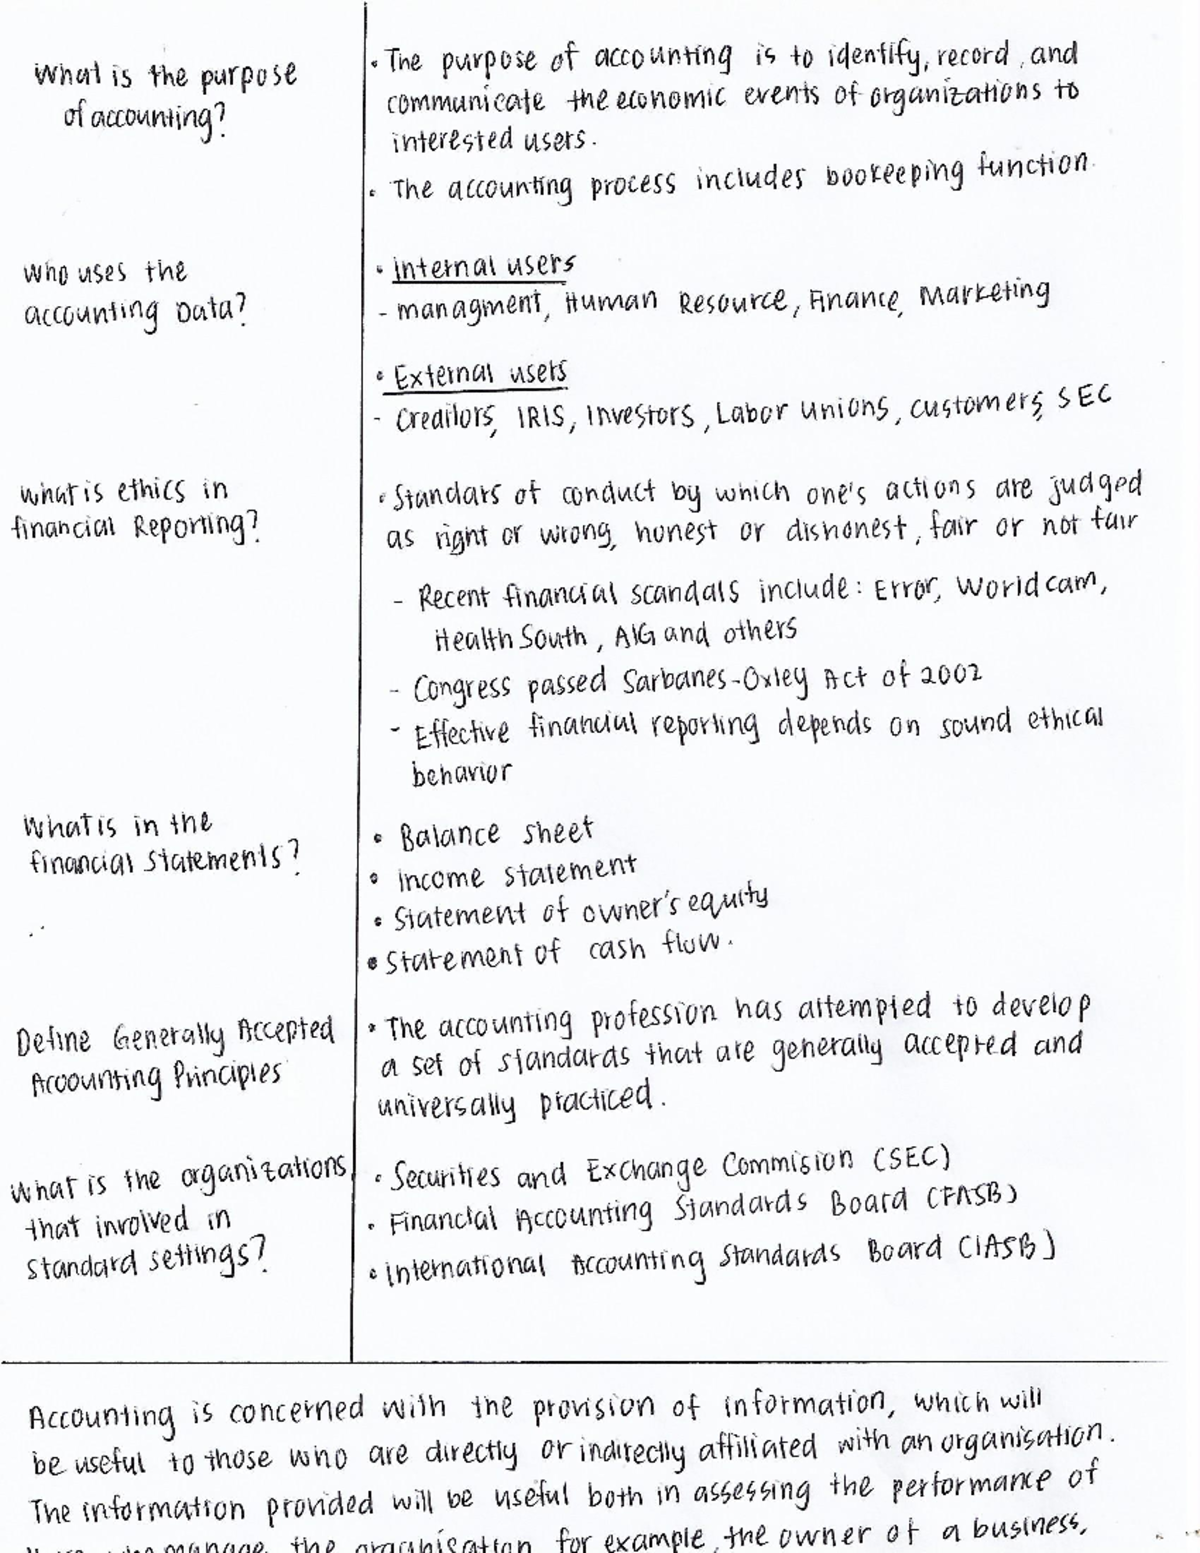 What is the purpose
of accounting?
• The purpose of accounting is to identify, record, and
communicate the economic events of organizations to
interested users.
• The accounting process includes bookeeping function.
Who uses the
accounting Data?
• internal users
- managment, Human Resource, Finance, Marketing
• External users
- Creditors, IRIS, Investors, Labor Unions, customers, SEC
What is ethics in
financial Reporting?
• Standars of conduct by which one's actions are judged
as right or wrong, honest or dishonest, fair or not fair
- Recent financial scandals include: Error, Worldcam,
Health South, AIG and others
- Congress passed Sarbanes-Oxley Act of 2002
- Effective financial reporting depends on sound ethical
behavior
What is in the
financial statements?
• Balance sheet
• income statement
• Statement of owner's equity
• Statement of cash flow.
Define Generally Accepted
Accounting Principles
• The accounting profession has attempted to develop
a set of standards that are generally accepted and
universally practiced.
What is the organizations
that involved in
standard settings?
• Securities and Exchange Commision (SEC)
• Financial Accounting Standards Board (FASB)
• international Accounting Standards Board (IASB)
Accounting is concerned with the provision of information, which will
be useful to those who are directly or indirectly affiliated with an organisation.
The information provided will be useful both in assessing the performance of
manage the organisation for example, the owner of a business,